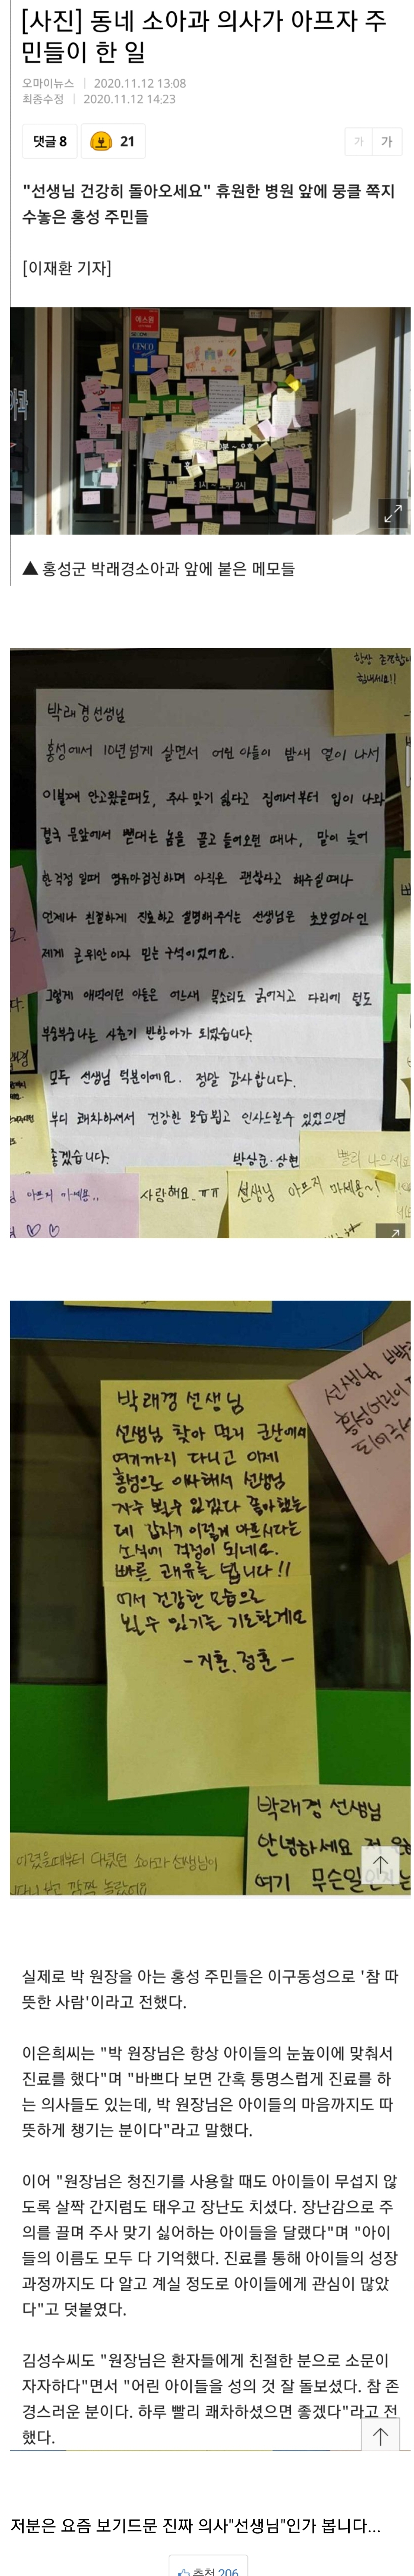 [사진] 동네 소아과 의사가 아프자 주
민들이 한 일
오마이뉴스 | 2020.11.12 13:08
최종수정 | 2020.11.12 14:23
댓글 8
21
가 가
"선생님 건강히 돌아오세요" 휴원한 병원 앞에 뭉클 쪽지
수놓은 홍성 주민들
[이재환 기자]
에스원
CESCO
▲ 홍성군 박래경소아과 앞에 붙은 메모들
힘내세요!!
박래경선생님
홍성에서 10년넘게 살면서 어린 아들이 밤새 열이 나서
이불째 안고왔을때도, 주사 맞기 싫다고 집에서부터 입이 나와
결국 문앞에서 뻗대는 놈을 끌고 들어오던 때나, 말이 늦어
한 걱정 일때 영유아검진하며 아직은 괜찮다고 해주실때나
언제나 친절하게 진료하고 설명해주시는 선생님은 초보엄마인
제게 큰 위안이자 믿는 구석이었어요.
그렇게 애먹이던 아들은 어느새 목소리도 굵어지고 다리에 털도
부숭부숭나는 사춘기 반항아가 되었습니다.
모두 선생님 덕분이에요. 정말 감사합니다.
부디 쾌차하셔서 건강한 모습뵙고 인사드릴수 있었으면
좋겠습니다. 박상준·상현
빨리 나으세요
아프지 마세용..
사랑해요.ㅠㅠ
선생님 아프지 마세용~!
박래경 선생님
선생님 찾아 멀리 군산에서
여기까지 다니고 이제
홍성으로 이사해서 선생님
자주 뵐수 있겠다 좋아했는
데 갑자기 이렇게 아프시다는
소식에 걱정이 되네요.
빠른 쾌유를 빕니다!!
어서 건강한 모습으로
뵐수 있기를 기도할게요
- 지훈, 정훈 -
선생님
박래경 선생님
안녕하세요
여기 무슨일
어렸을때부터 다녔던 소아과 선생님이
깜짝 놀랐어요
실제로 박 원장을 아는 홍성 주민들은 이구동성으로 '참 따
뜻한 사람'이라고 전했다.
이은희씨는 "박 원장님은 항상 아이들의 눈높이에 맞춰서
진료를 했다"며 "바쁘다 보면 간혹 퉁명스럽게 진료를 하
는 의사들도 있는데, 박 원장님은 아이들의 마음까지도 따
뜻하게 챙기는 분이다"라고 말했다.
이어 "원장님은 청진기를 사용할 때도 아이들이 무섭지 않
도록 살짝 간지럼도 태우고 장난도 치셨다. 장난감으로 주
의를 끌며 주사 맞기 싫어하는 아이들을 달랬다"며 "아이
들의 이름도 모두 다 기억했다. 진료를 통해 아이들의 성장
과정까지도 다 알고 계실 정도로 아이들에게 관심이 많았
다"고 덧붙였다.
김성수씨도 "원장님은 환자들에게 친절한 분으로 소문이
자자하다"면서 "어린 아이들을 성의 것 잘 돌보셨다. 참 존
경스러운 분이다. 하루 빨리 쾌차하셨으면 좋겠다"라고 전
했다.
저분은 요즘 보기드문 진짜 의사"선생님"인가 봅니다...
추천 206